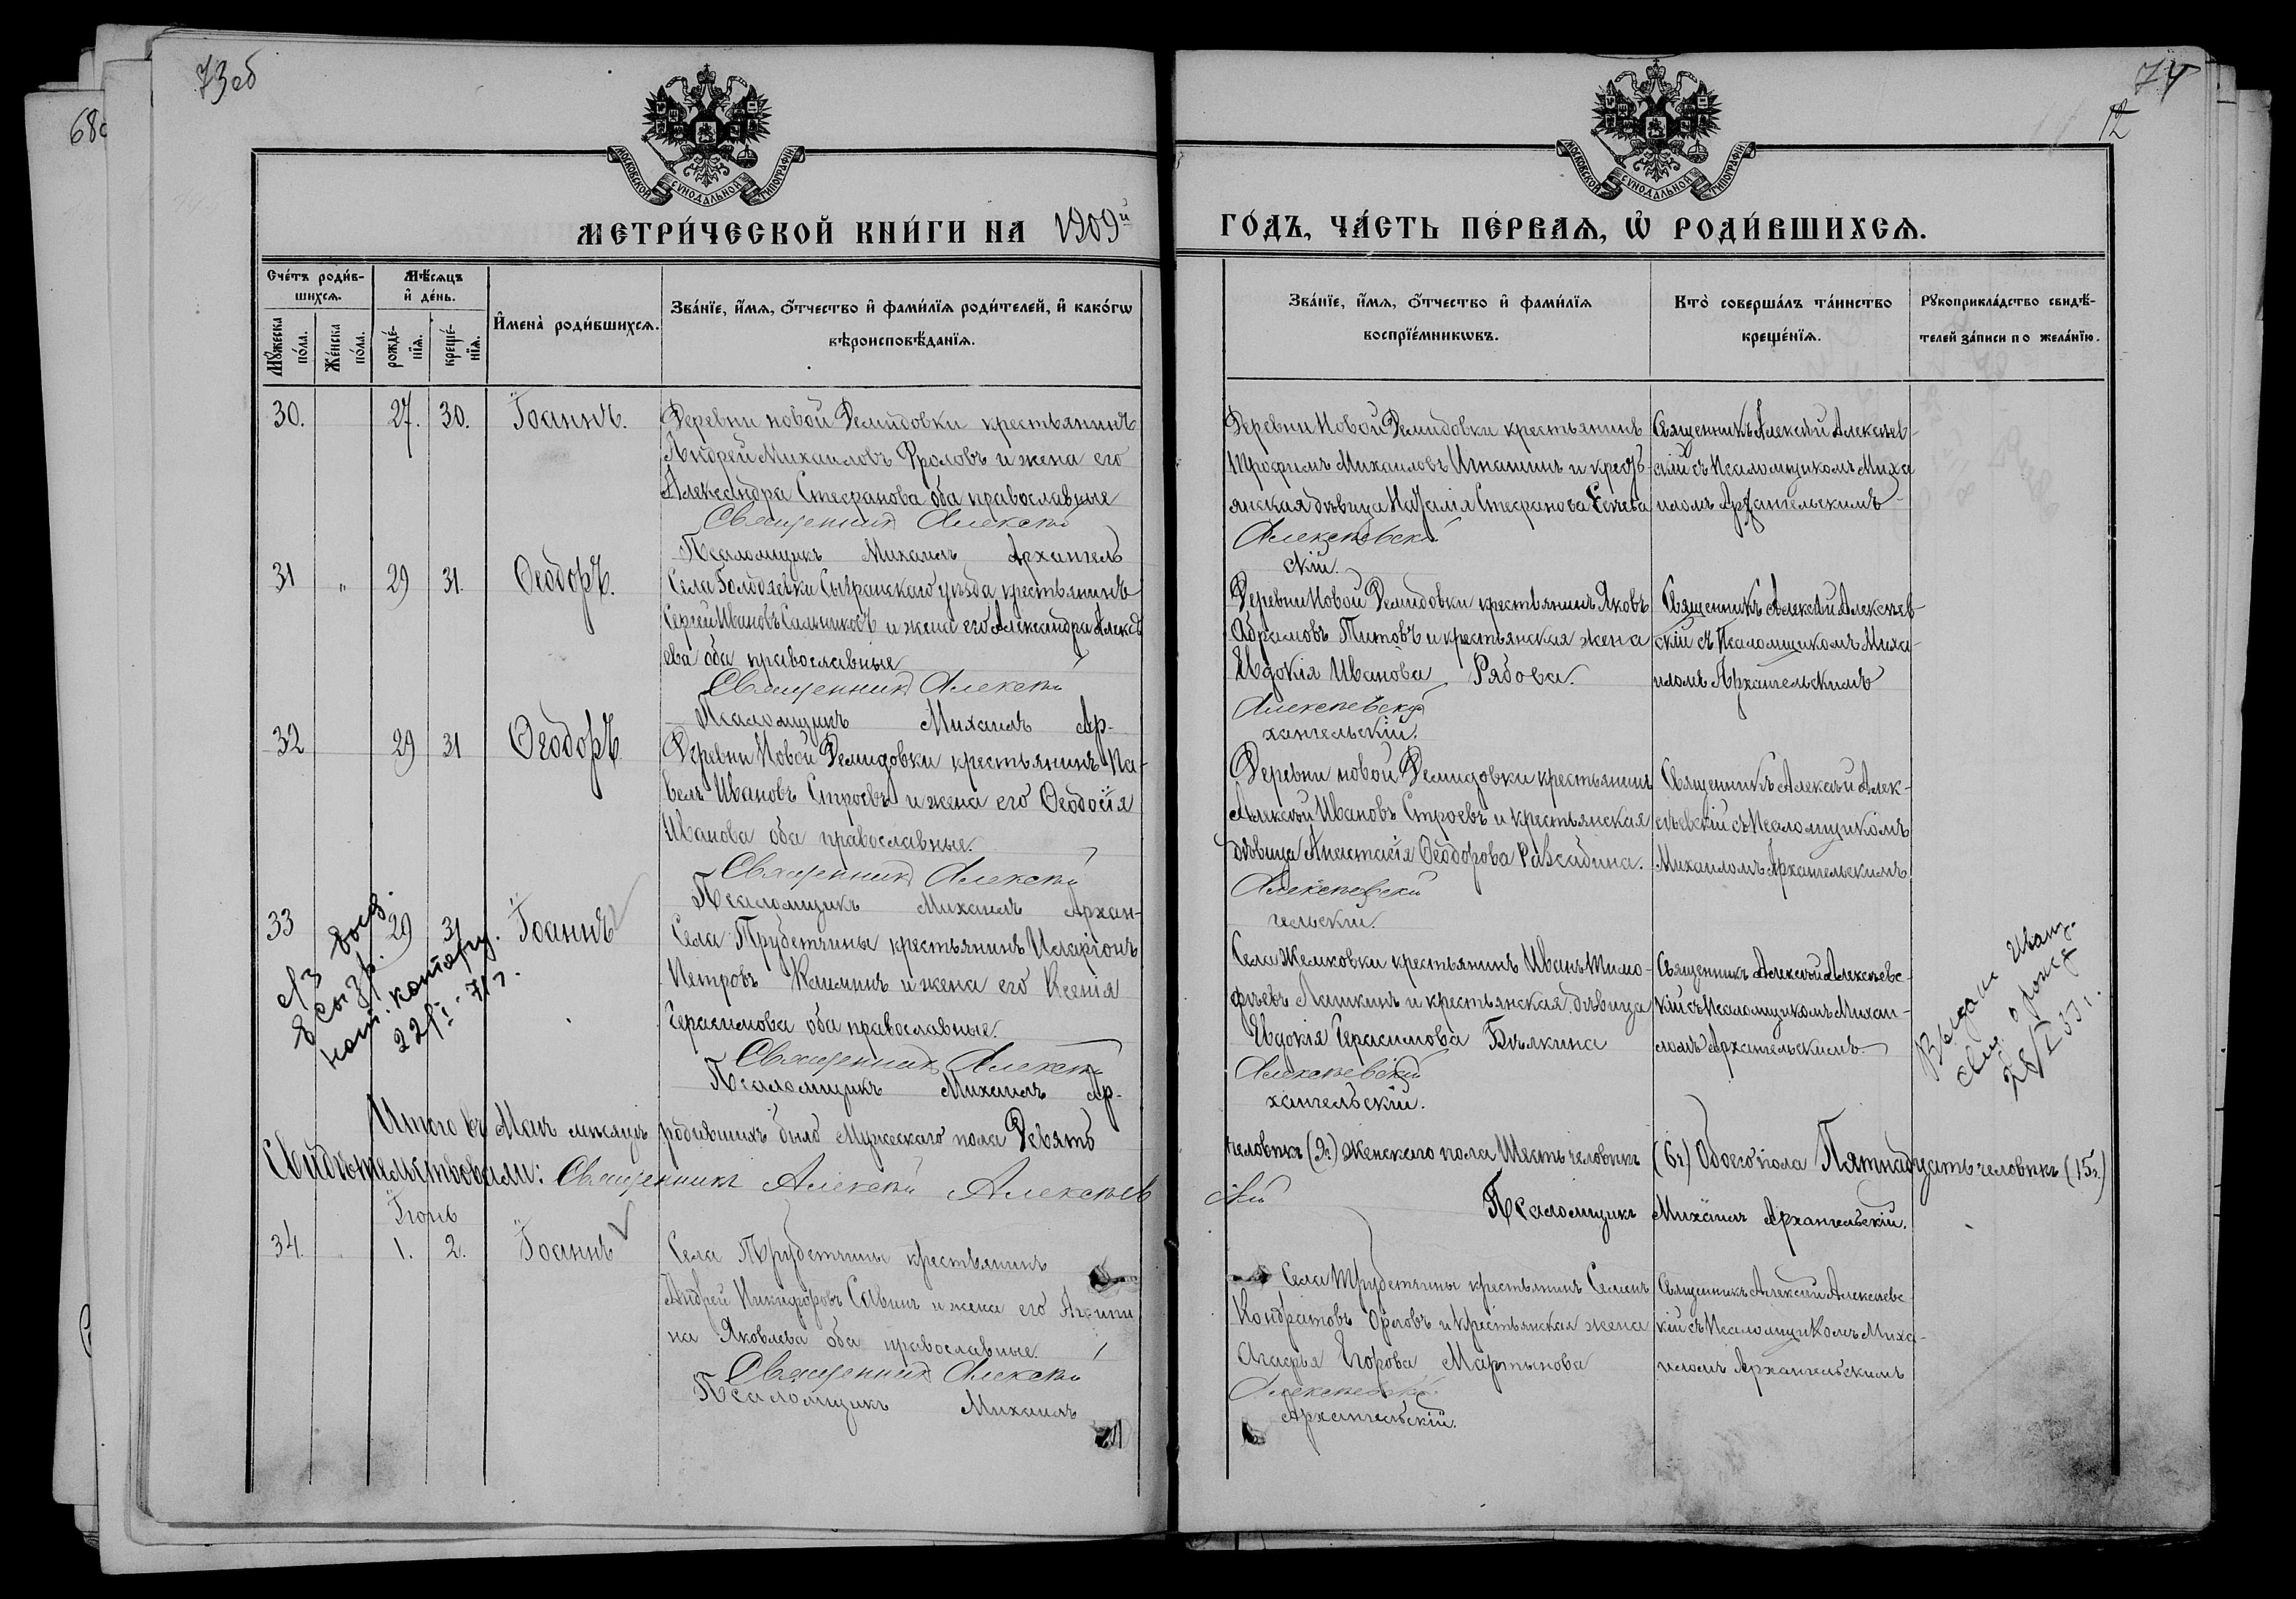 73об
68
74
12
МОСКОВСКОЙ СѴНОДАЛЬНОЙ ТИПОГРАФІИ
МОСКОВСКОЙ СѴНОДАЛЬНОЙ ТИПОГРАФІИ
МЕТРИ́ЧЕСКОЙ КНИ́ГИ НА 1909й
ГО́ДЪ, ЧА́СТЬ ПЕ́РВАѦ, Ѡ҆ РОДИ́ВШИХСѦ.
Сче́тъ роди́в-
шихсѧ.
Мꙋ́жеска по́ла.
Же́нска по́ла.
Мѣ́сѧцъ
и҆ де́нь.
рожде́-
нїѧ.
креще́-
нїѧ.
И҆мена̀ роди́вшихсѧ.
Зва́нїе, и҆́мѧ, ѻ҆́тчество и҆ фами́лїѧ роди́телей, и҆ како́гѡ
вѣроисповѣ́данїѧ.
Зва́нїе, и҆́мѧ, ѻ҆́тчество и҆ фами́лїѧ
воспрїе́мникѡвъ.
Кто̀ соверша́лъ та́инство
креще́нїѧ.
Рꙋкоприкла́дство свидѣ́-
телей за́писи по жела́нїю.
30. 27. 30. Іоаннъ.
Деревни Новой Демидовки крестьянинъ
Андрей Михаиловъ Фроловъ и жена его
Александра Стефанова оба православные
Священникъ Алексѣй
Псаломщикъ Михаилъ Архангель
Деревни Новой Демидовки крестьянинъ
Трофимъ Михаиловъ Игнашинъ и кресть-
янская дѣвица Наталія Стефанова
Алексѣевскій
скій.
Священникъ Алексѣй Алексѣев-
скій съ Псаломщикомъ Миха
иломъ Архангельскимъ
31 " 29 31. Ѳеодоръ.
Села Голодяевки Сызранскаго уѣзда крестьянинъ
Сергей Ивановъ Сальниковъ и жена его Александра Алексѣ
ева оба православные
Священникъ Алексѣй
Псаломщикъ Михаилъ Ар-
Деревни Новой Демидовки крестьянинъ Яковъ
Абрамовъ Титовъ и крестьянская жена
Евдокія Иванова Рябова.
Алексѣевскій
хангельскій.
Священникъ Алексѣй Алексѣев-
скій съ Псаломщикомъ Миха-
иломъ Архангельскимъ
32 29 31 Ѳеодоръ
Деревни Новой Демидовки крестьянинъ Па-
велъ Ивановъ Строевъ и жена его Ѳеодосія
Иванова оба православные.
Священникъ Алексѣй
Псаломщикъ Михаилъ Архан-
Деревни Новой Демидовки крестьянинъ
Алексѣй Ивановъ Строевъ и крестьянская
дѣвица Анастасія Ѳеодорова
Алексѣевскій
гельскій.
Священникъ Алексѣй Алек-
сѣевскій съ Псаломщикомъ
Михаиломъ Архангельскимъ
33 29 31 Іоаннъ
Села Трубетчины крестьянинъ Иларіонъ
Петровъ Климинъ и жена его Ксенія
Герасимова оба православные.
Священникъ Алексѣй
Псаломщикъ Михаилъ Ар-
Села Жемковки крестьянинъ Иванъ Тимо-
фѣевъ Лашкинъ и крестьянская дѣвица
Евдокія Герасимова Бѣлкина
Алексѣевскій
хангельскій.
Священникъ Алексѣй Алексѣевс-
кій съ Псаломщикомъ Михаи-
ломъ Архангельскимъ.
28/I 33 г.
Итого въ Маѣ мѣсяцѣ родившихъ было Мужескаго пола Девять
человѣкъ (9.) Женскаго пола Шесть человѣкъ (6ч) Обоего пола Пятнадцать человѣкъ (15ч)
Свидѣтельствовали: Священникъ Алексѣй Алексѣев
скій Псаломщикъ Михаилъ Архангельскій.
Іюнь
34. 1. 2. Іоаннъ
Села Трубетчины крестьянинъ
Андрей Никифоровъ Савинъ и жена его Акили
на Яковлева оба православные.
Священникъ Алексѣй
Псаломщикъ Михаилъ
Села Трубетчины крестьянинъ Семенъ
Кондратовъ Орловъ и крестьянская жена
Агафья Егорова Мартынова
Алексѣевскій
Архангельскій.
Священникъ Алексѣй Алексѣевс
кій съ Псаломщикомъ Миха-
иломъ Архангельскимъ